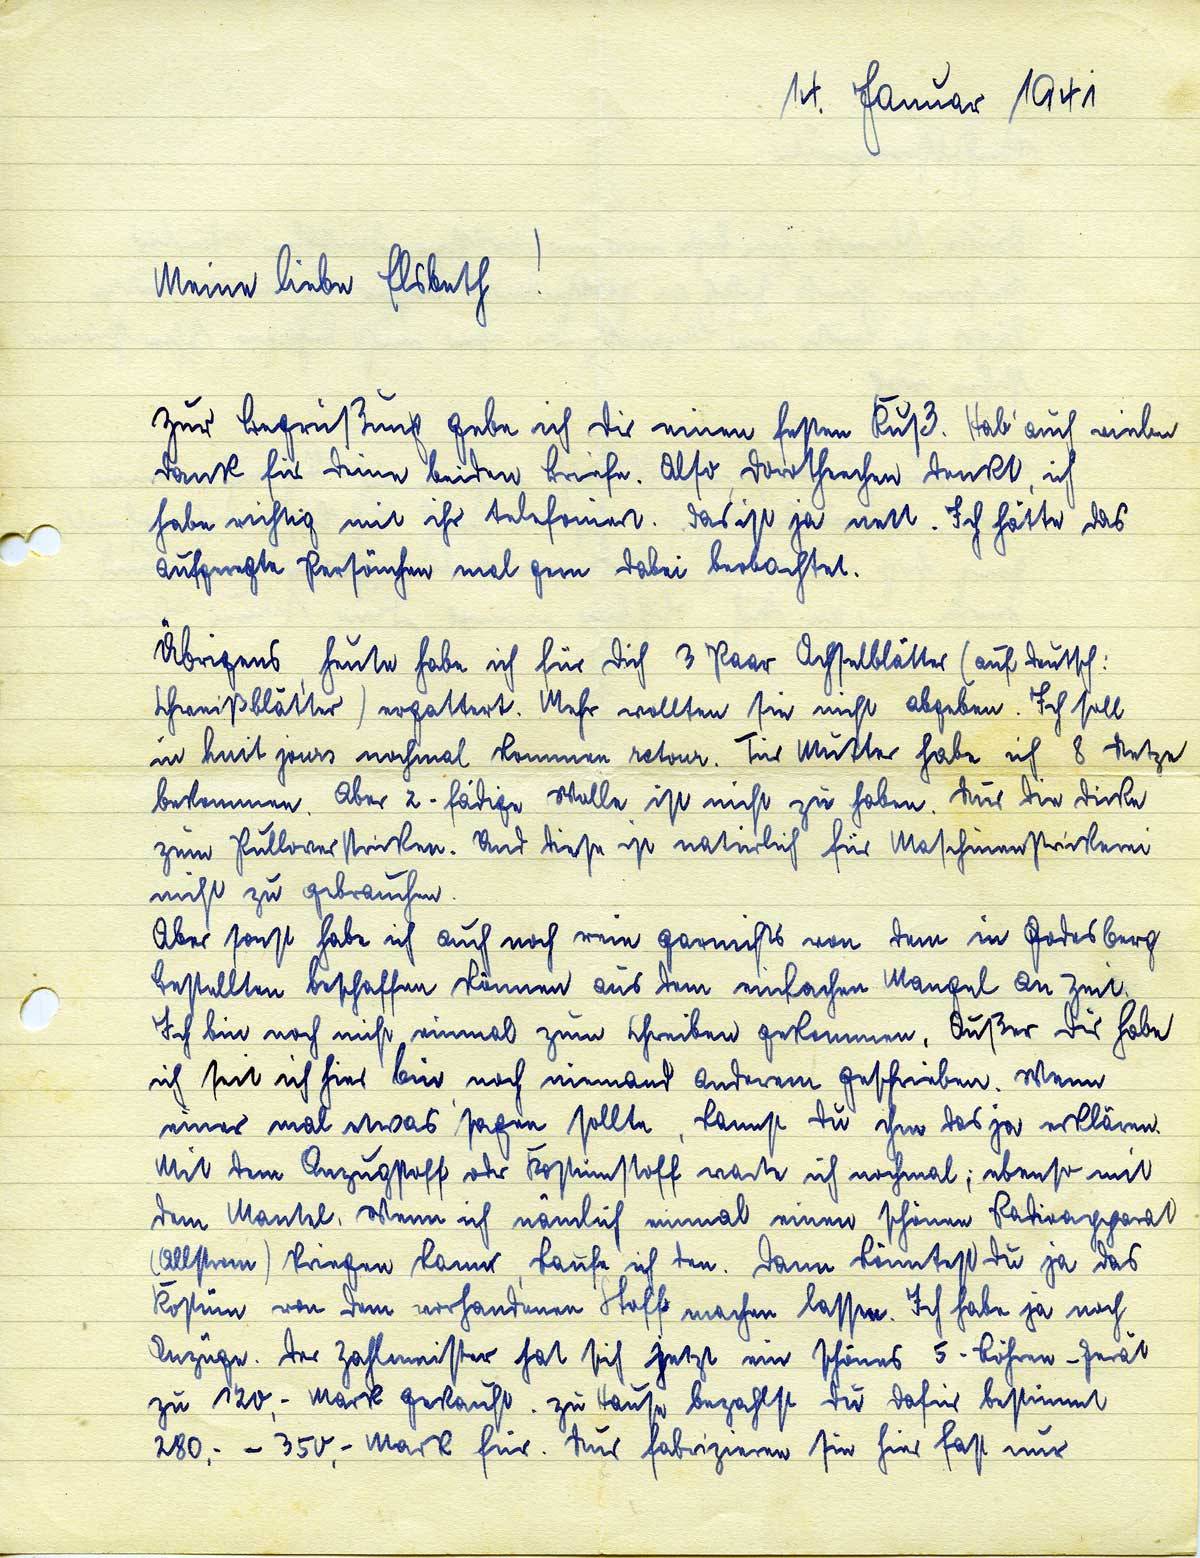 14. Januar 1941
Meine liebe Elsbeth!
Zur Begrüßung gebe ich Dir einen festen Kuß. Hab' auch vielen
Dank für Deine beiden Briefe. Also, Dorotheechen denkt, ich
habe richtig mit ihr telefoniert. Das ist ja nett. Ich hätte das
aufgeregte Persönchen mal gern dabei beobachtet.
Übrigens, heute habe ich für Dich 3 Paar Achselblätter (auf deutsch:
Schweißblätter) ergattert. Mehr wollten sie nicht abgeben. Ich soll
in huit jours nochmal kommen retour. Für Mutter habe ich 8 Netze
bekommen. Aber 2-fädige Wolle ist nicht zu haben. Nur die dicke
zum Pulloverstricken. Und diese ist natürlich für Maschinenstrickerei
nicht zu gebrauchen.
Aber sonst habe ich auch noch rein garnichts von dem in Godesberg
bestellten beschaffen können aus dem einfachen Mangel an Zeit.
Ich bin noch nicht einmal zum Schreiben gekommen. Außer Dir habe
ich seit ich hier bin, noch niemand anderem geschrieben. Wenn
einer mal etwas sagen sollte, kannst Du ihm das ja erklären.
Mit dem Anzugstoff oder Kostümstoff warte ich nochmal; ebenso mit
dem Mantel. Wenn ich nämlich einmal einen schönen Radioapparat
(Allstrom) kriegen kann, kaufe ich den. Dann könntest Du ja das
Kostüm von dem vorhandenen Stoff machen lassen. Ich habe ja noch
Anzüge. Der Zahlmeister hat sich jetzt ein schönes 5-Röhren-Gerät
zu 120,- Mark gekauft. Zu Hause bezahlst Du dafür bestimmt
280,- - 350,- Mark für. Nur fabrizieren sie hier fast nur